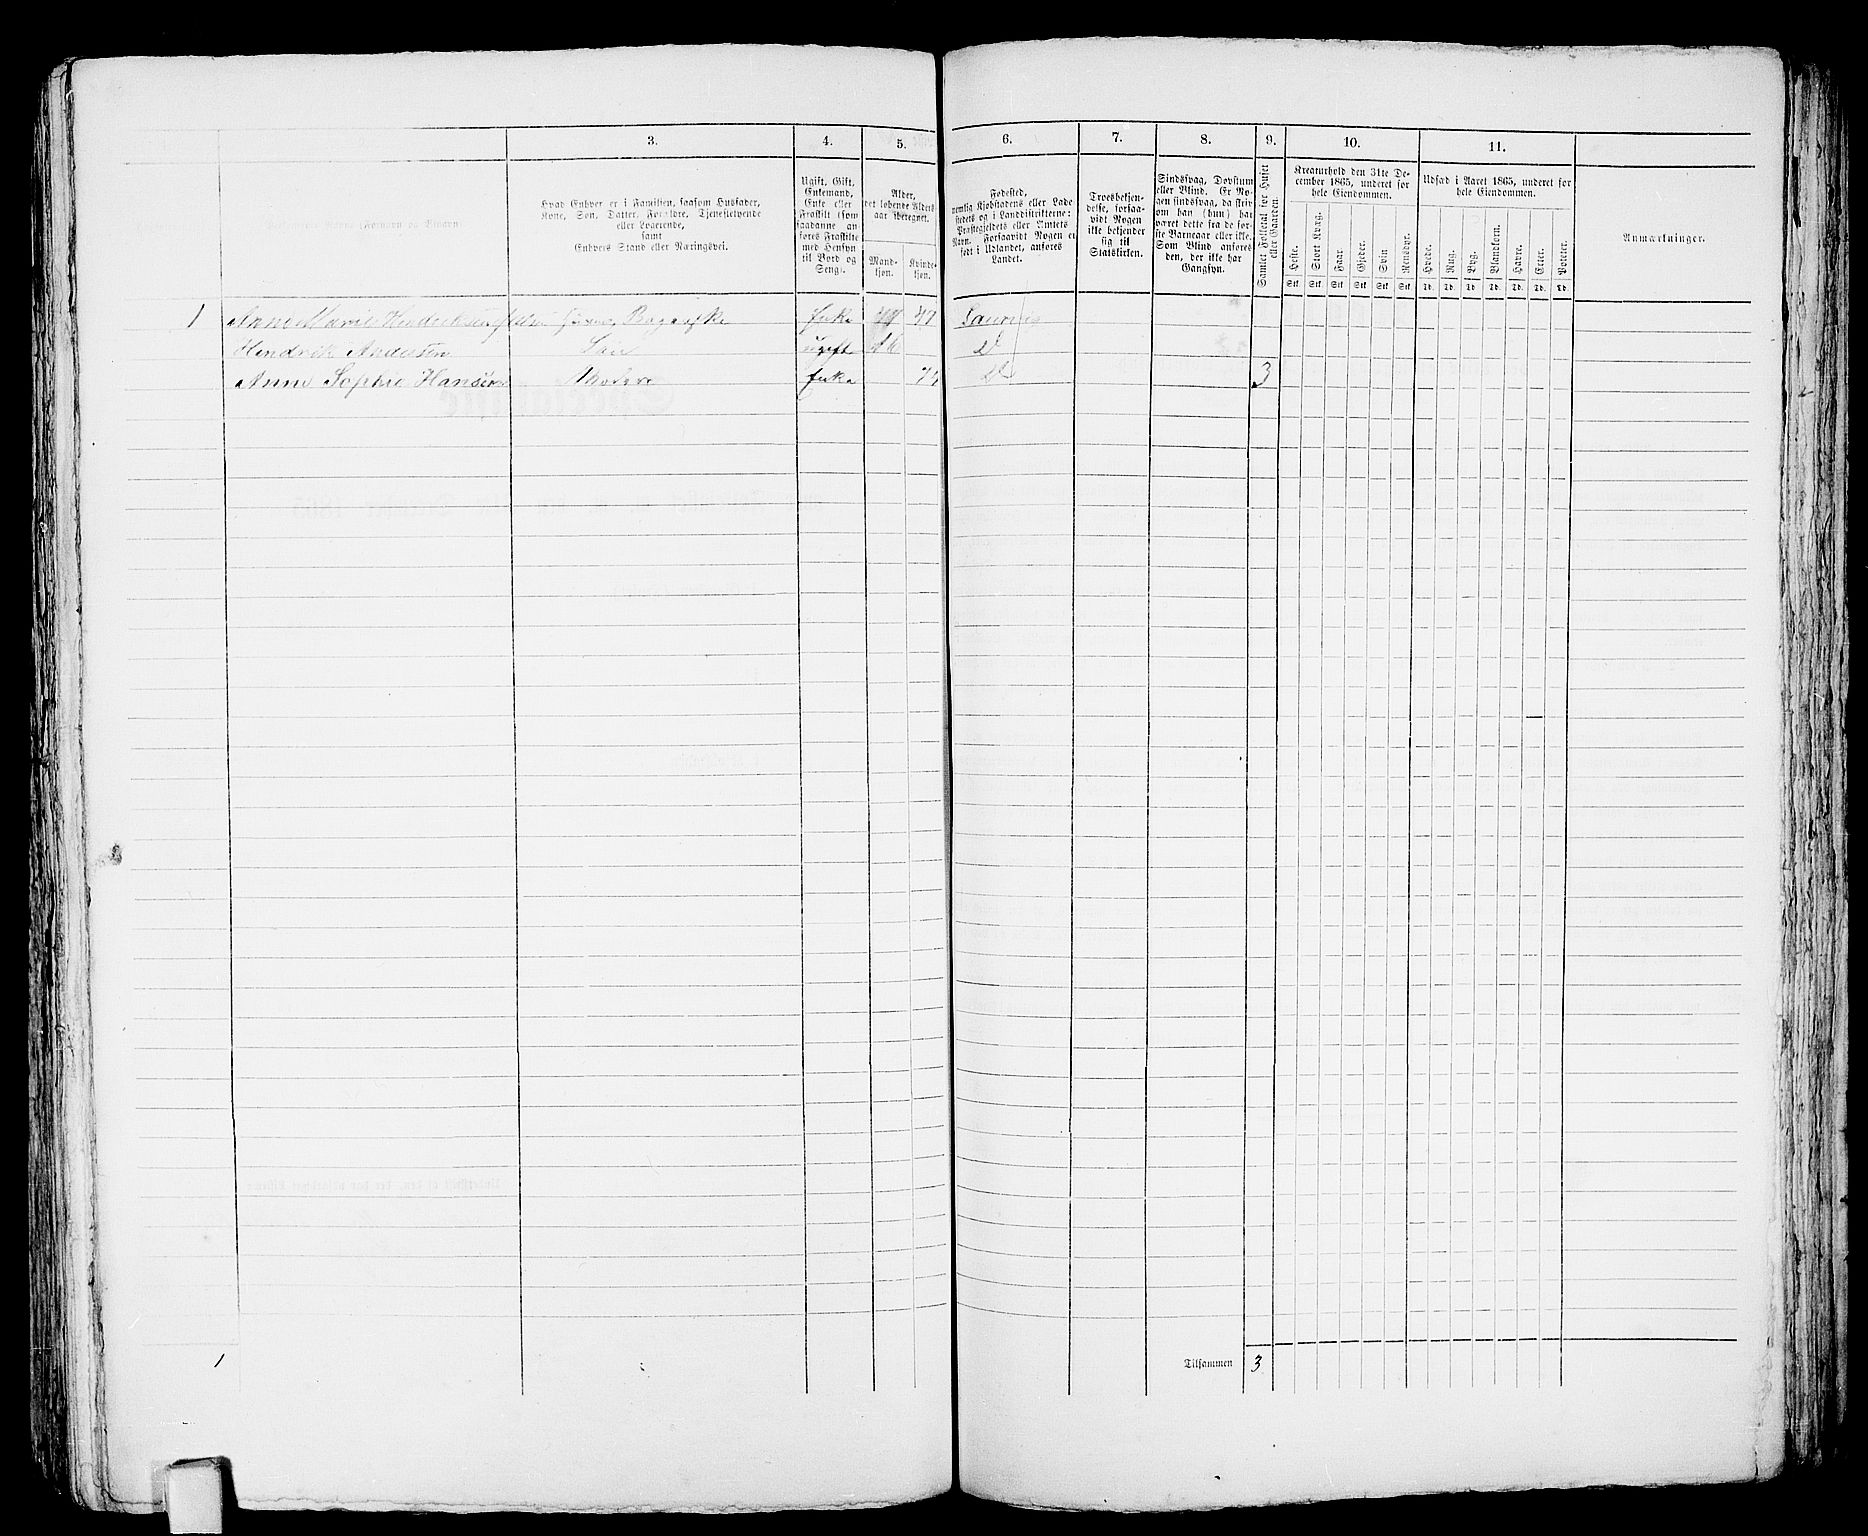 3.
4.
5.
6.
7.
8.
9.
10.
11.
Hvad Enhver er i Familien, saasom Husfader,
Kone, Søn, Datter, Forældre, Tjenestetyende
eller Logerende,
samt
Enhvers Stand eller Næringsvei.
Ugift, Gift,
Enkemand,
Enke eller
Fraskilt (som
saadanne an-
føres Fraskilte
med Hensyn
til Bord og
Seng).
Alder,
det løbende Alders-
aar iberegnet.
Mand-
kjøn.
Kvinde-
kjøn.
Fødested,
nemlig Kjøbstadens eller Lade-
stedets og i Landdistrikterne:
Præstegjeldets eller Amtets
Navn. Forsaavidt Nogen er
født i Udlandet, anføres
Landet.
Troesbekjen-
delse, forsaa-
vidt Nogen
ikke bekjender
sig til
Statskirken.
Sindssvag, Døvstum
eller Blind. Er No-
gen sindssvag, da skriv
om han (hun) har
været dette fra de før-
ste Barneaar eller ikke.
Som Blind anføres
den, der ikke har
Gangsyn.
Samlet Folketal for Huset
eller Gaarden.
Kreaturhold den 31te De-
cember 1865, underet for
hele Eiendommen.
Heste.
Stort Kvæg.
Faar.
Gjeder.
Svin
Rensdyr.
Udsæd i Aaret 1865, underet for
hele Eiendommen.
Hvede.
Rug.
Byg.
Blandkorn.
Havre.
Erter.
Poteter.
Anmærkninger.
Stk Stk Stk Stk Stk Stk Td. Td. Td. Td. Td. Td. Td.
1 Anne Marie Enke 47
Hendrik Andersen Søn ugift D
Anne Sophie Hansen Moder Enke D 3
1 Tilsammen 3